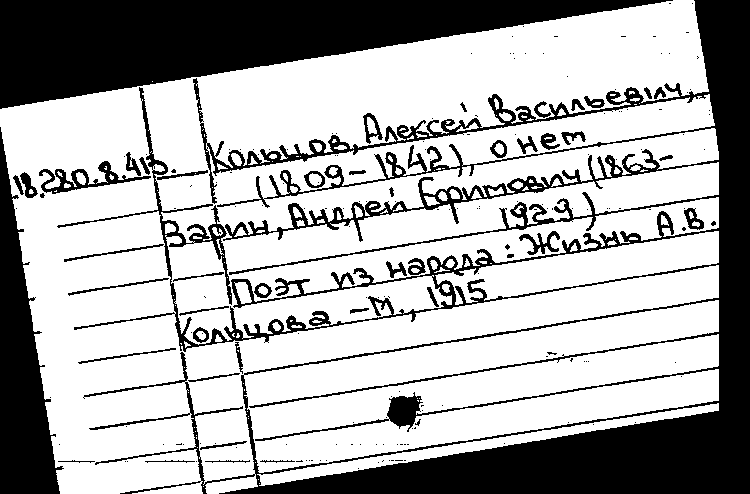 18.280.8.413. Кольцов, Алексей Васильевич,
(1809-1842), о нем.
Зарин, Андрей Ефимович (1863-
1929)
Поэт из народа: Жизнь А.В.
Кольцова. -М., 1915.